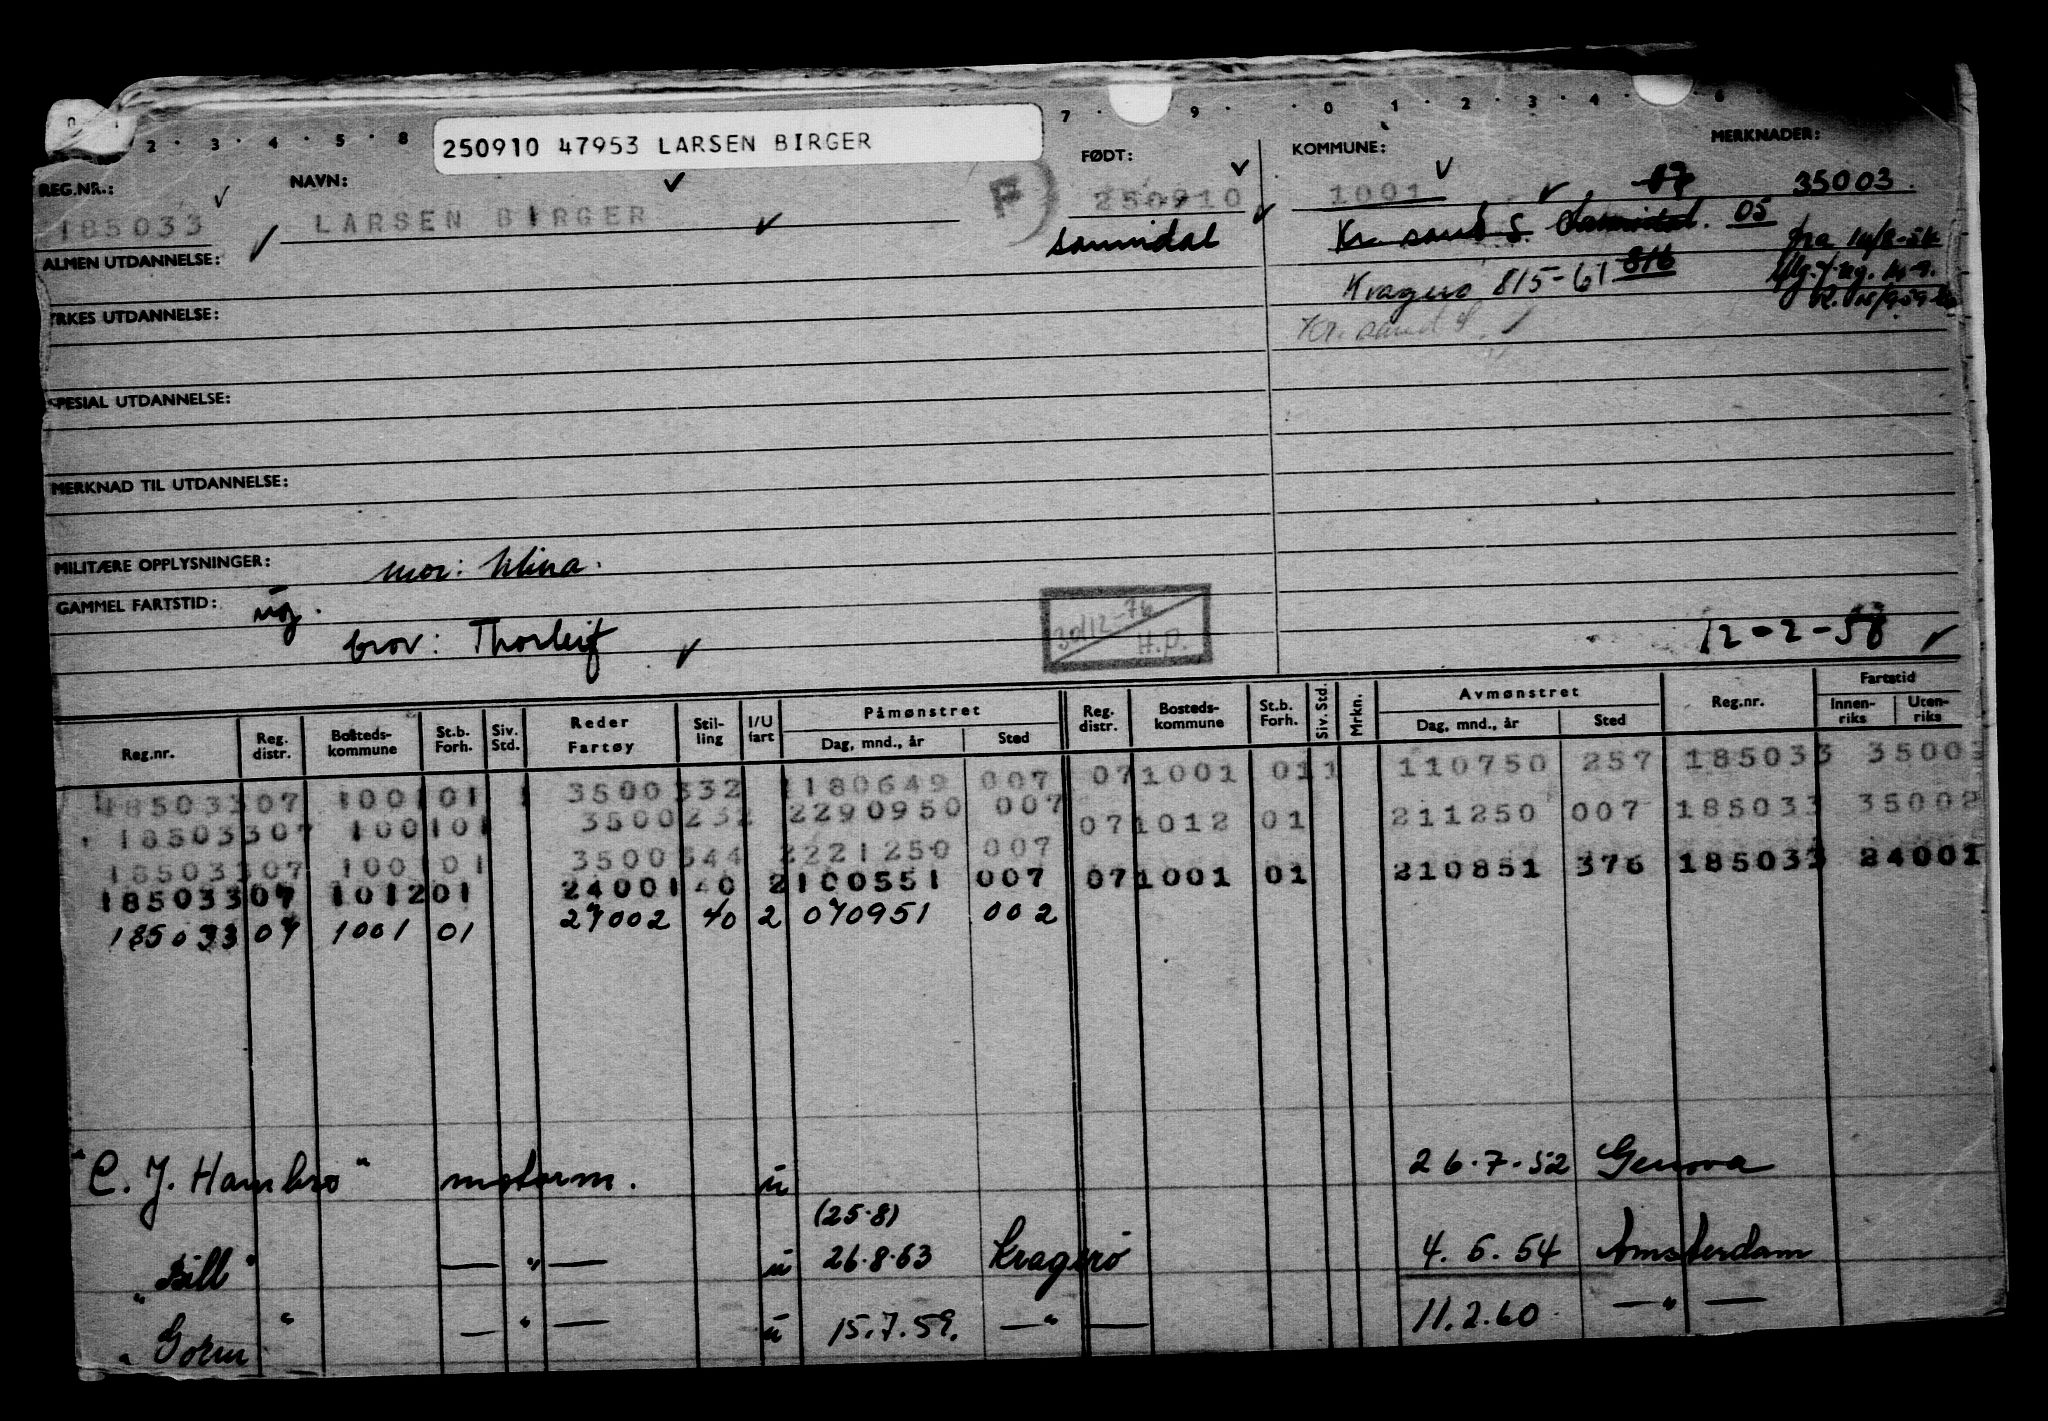 2 · 3 · 4 · 5 · 8 7 · 9 · 0 · 1 · 2 · 3 · 4 · 6
250910 47953 LARSEN BIRGER
REG.NR.: NAVN: FØDT: KOMMUNE: MERKNADER:
185033 LARSEN BIRGER F) 250910 1001 07 35003.
sannidal Kr. sand S. Sannidal. 05 fra
ALMEN UTDANNELSE:
Kragerø 815-61 816
YRKES UTDANNELSE: Kr. sand S.
SPESIAL UTDANNELSE:
MERKNAD TIL UTDANNELSE:
MILITÆRE OPPLYSNINGER: mor:
GAMMEL FARTSTID: ug. 30/12-76 H.P.
bror: Thorleif 12-2-58
Reg.nr. Reg. distr. Bosteds-kommune St.b. Forh. Siv. Std. Reder Fartøy Stil-ling I/U fart Påmønstret Dag, mnd., år Sted Reg. distr. Bosteds-kommune St.b. Forh. Siv. Std. Mrkn. Avmønstret Dag, mnd., år Sted Reg.nr. Fartstid Innen-riks Uten-riks
185033 07 1001 01 1 3500332 2180649 007 07 1001 01 1 110750 257 185033 35003
185033 07 1001 01 3500232 2290950 007 07 1012 01 211250 007 185033 35002
185033 07 1001 01 3500344 2221250 007
185033 07 1012 01 24001 40 2 100551 007 07 1001 01 210851 376 185033 24001
185033 07 1001 01 27002 40 2 070951 002
"C. J. Hambro" motorm. u 26.7.52 Genova
(25.8)
"Bill" — " — u 26.8.53 Kragerø 4.6.54 Amsterdam
"Gorm" — " — u 15.7.59. — " — 11.2.60 — " —